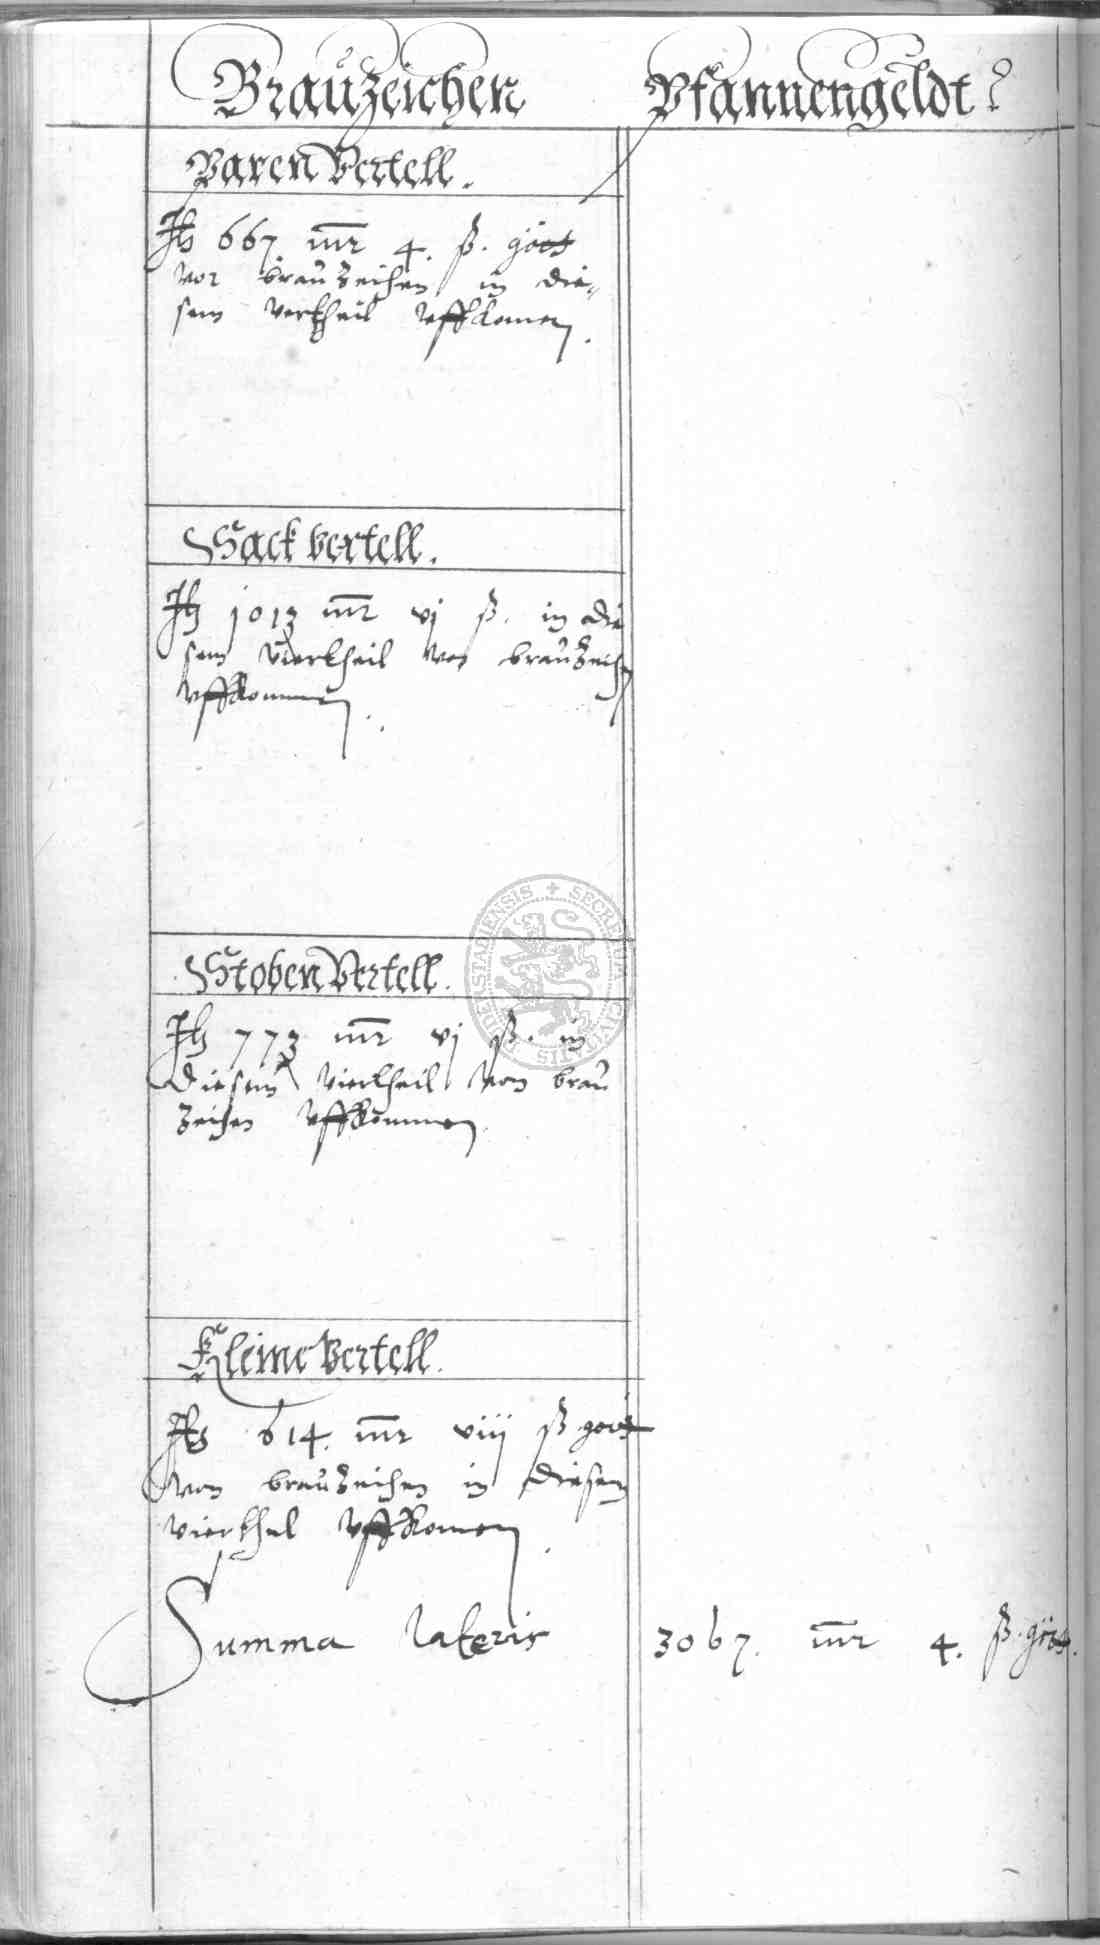 Brauzeichen Pfannengeldt
Paren Vertell.
It 667 mr 4. ß. gött
vor brauzeichen in die=
sem Vertheil Uffkomen.
Sack vertell.
It 1013 mr vj ß. in die
sem Viertheil vor brauzeichen
Uffkommen.
Stoben Vertell.
It 773 mr vj ß. in
diesem Viertheil von brau
zeichen Uffkommen
Kleine Vertell.
It 614. mr viij ß gött
von brauzeichen in diesem
Vierthel Uffkomen.
Summa lateris 3067. mr 4. ß. gött.
SECRETUM CIVITATIS DUDERSTADIENSIS